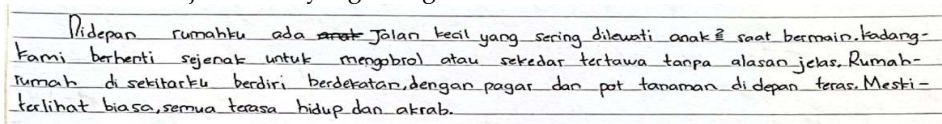 Didepan rumahku ada anak Jalan kecil yang sering dilewati anak² saat bermain. Kadang-
kami berhenti sejenak untuk mengobrol atau sekedar tertawa tanpa alasan jelas. Rumah-
rumah di sekitarku berdiri berdekatan, dengan pagar dan pot tanaman di depan teras. Meski-
terlihat biasa, semua terasa hidup dan akrab.